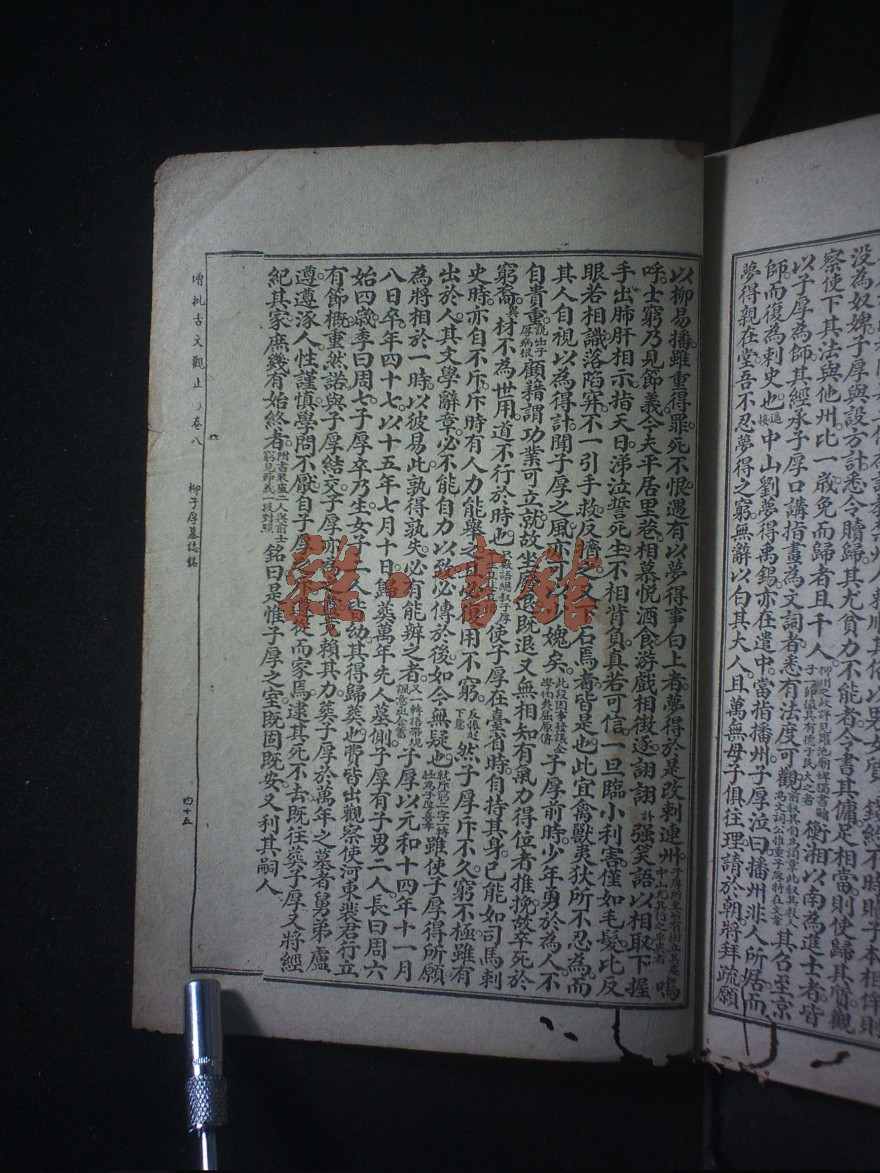 順賴其俗以男女質錢約不時贖子本相侔則
沒為奴婢子厚與設方計悉令贖歸其尤貧力不能者令書其傭足相當則使歸其質觀
察使下其法與他州比一歲免而歸者且千人 衡湘以南為進士者皆
以子厚為師其經承子厚口講指畫為文詞者悉有法度可觀 其召至京
師而復為刺史也遙接中山劉夢得禹錫亦在遣中當詣播州子厚泣曰播州非人所居而
夢得親在堂吾不忍夢得之窮無辭以白其大人且萬無母子俱往理請於朝將拜疏願
以柳易播雖重得罪死不恨遇有以夢得事白上者夢得於是改刺連州 嗚
呼士窮乃見節義今夫平居里巷相慕悅酒食游戲相徵逐詡詡強笑語以相取下握
手出肺肝相示指天日涕泣誓死生不相背負真若可信一旦臨小利害僅如毛髮比反
眼若相識落陷穽不一引手救反擠之又下石焉者皆是也此宜禽獸夷狄所不忍為而
其人自視以為得計聞子厚之風亦可以愧矣 子厚前時少年勇於為人不
自貴重 顧藉謂功業可立就故坐廢退既退又無相知有氣力得位者推挽故卒死於
窮裔材不為世用道不行於時也 使子厚在臺省時自持其身已能如司馬刺
史時亦自不斥斥時有人力能舉之且必復用不窮 然子厚斥不久窮不極雖有
出於人其文學辭章必不能自力以致必傳於後如今無疑也 雖使子厚得所願
為將相於一時以彼易此孰得孰失必有能辨之者 子厚以元和十四年十一月
八日卒年四十七以十五年七月十日歸葬萬年先人墓側子厚有子男二人長曰周六
始四歲季曰周七子厚卒乃生女子二人皆幼其得歸葬也費皆出觀察使河東裴君行立
有節概重然諾與子厚結交子厚亦為之盡竟賴其力葬子厚於萬年之墓者舅弟盧
遵遵涿人性謹慎學問不厭自子厚之斥遵從而家焉逮其死不去既往葬子厚又將經
紀其家庶幾有始終者 銘曰是惟子厚之室既固既安又利其嗣人
增批古文觀止 卷八 柳子厚墓誌銘 四十五